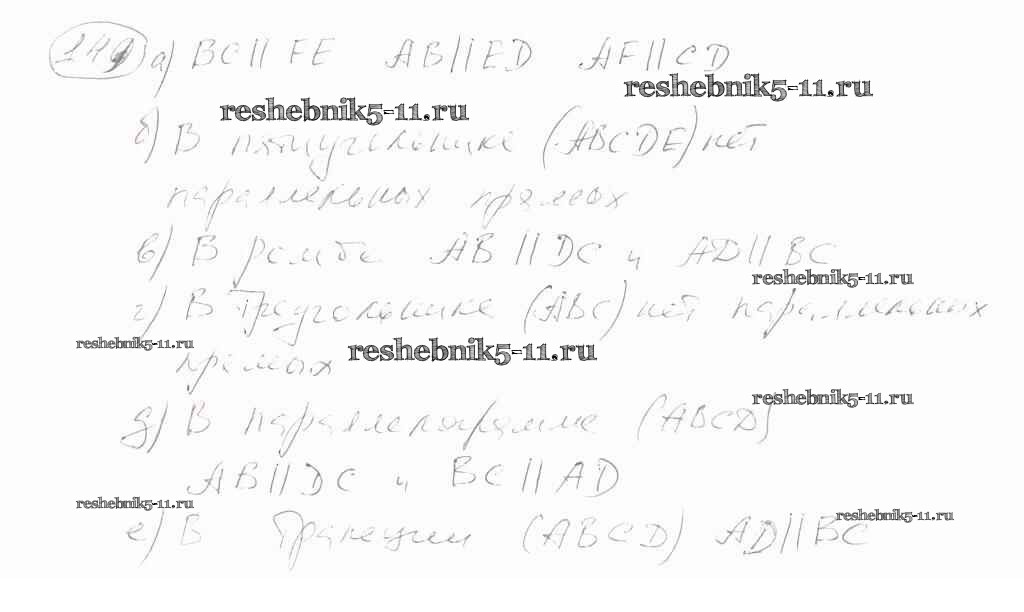 149 а) BC || FE AB || ED AF || CD
reshebnik5-11.ru
reshebnik5-11.ru
б) В пятиугольнике (ABCDE) нет
параллельных прямых
в) В ромбе AB || DC и AD || BC
reshebnik5-11.ru
г) В треугольнике (ABC) нет параллельных
reshebnik5-11.ru
reshebnik5-11.ru
прямых
reshebnik5-11.ru
д) В параллелограмме (ABCD)
AB || DC и BC || AD
reshebnik5-11.ru
reshebnik5-11.ru
е) В трапеции (ABCD) AD || BC